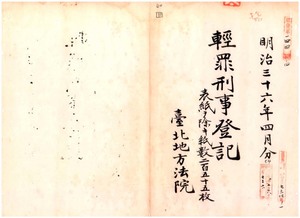 明治三十六年四月分
輕罪刑事登記
表紙ヲ除キ紙數二百五十五枚
臺北地方法院